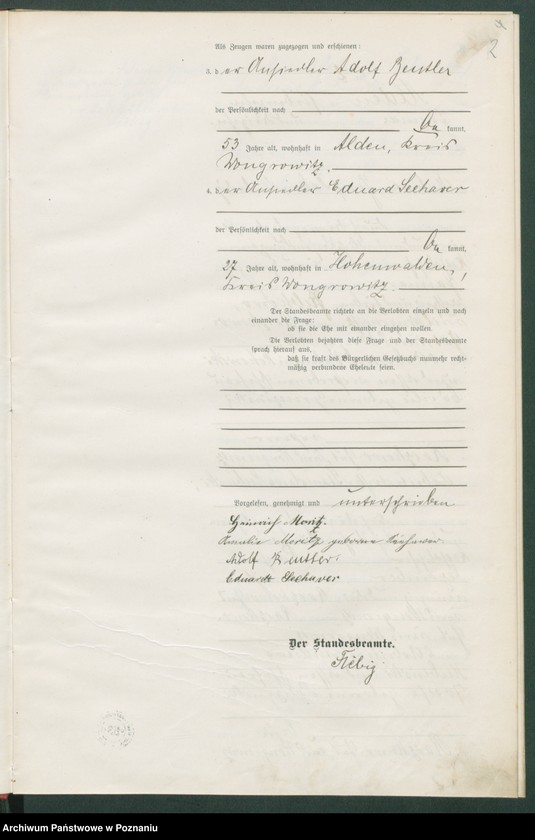 2
Als Zeugen waren zugezogen und erschienen:
3. der Ansiedler Adolf Zeutler
der Persönlichkeit nach
bekannt,
53 Jahre alt, wohnhaft in Alden, Kreis
Wongrowitz.
4. der Ansiedler Eduard Seehaver
der Persönlichkeit nach
bekannt,
27 Jahre alt, wohnhaft in Hohenwalden,
Kreis Wongrowitz.
Der Standesbeamte richtete an die Verlobten einzeln und nach
einander die Frage:
ob sie die Ehe mit einander eingehen wollen.
Die Verlobten bejahten diese Frage und der Standesbeamte
sprach hierauf aus,
daß sie kraft des Bürgerlichen Gesetzbuchs nunmehr recht-
mäßig verbundene Eheleute seien.
Vorgelesen, genehmigt und unterschrieben
Heinrich Moritz.
Moritz geborene Seehaver.
Adolf
Eduardt Seehaver
Der Standesbeamte.
Fiebig
Archiwum Państwowe w Poznaniu